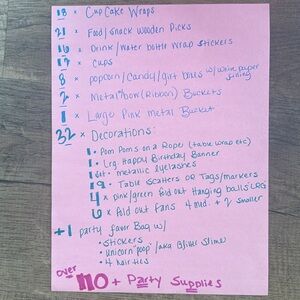 18 x Cupcake Wraps
21 x Food/snack wooden Picks
16 x Drink/water bottle wrap stickers
17 x cups
8 x popcorn/candy/gift boxes w/ white paper lining
2 x Metal bow (Ribbon) Buckets
1 x Large Pink metal Bucket
32 x Decorations:
1 • Pom Poms on a Rope (table wrap etc)
1 • Lrg. Happy Birthday Banner
1 set • metallic eyelashes
19 • Table scatters or Tags/markers
4 x pink/green fold out Hanging balls LRG
6 x fold out Fans 4 md. + 2 smaller
+1 party favor Bag w/
• stickers
• unicorn "poop"/aka Glitter Slime
• 4 hair ties
over 110 + Party Supplies